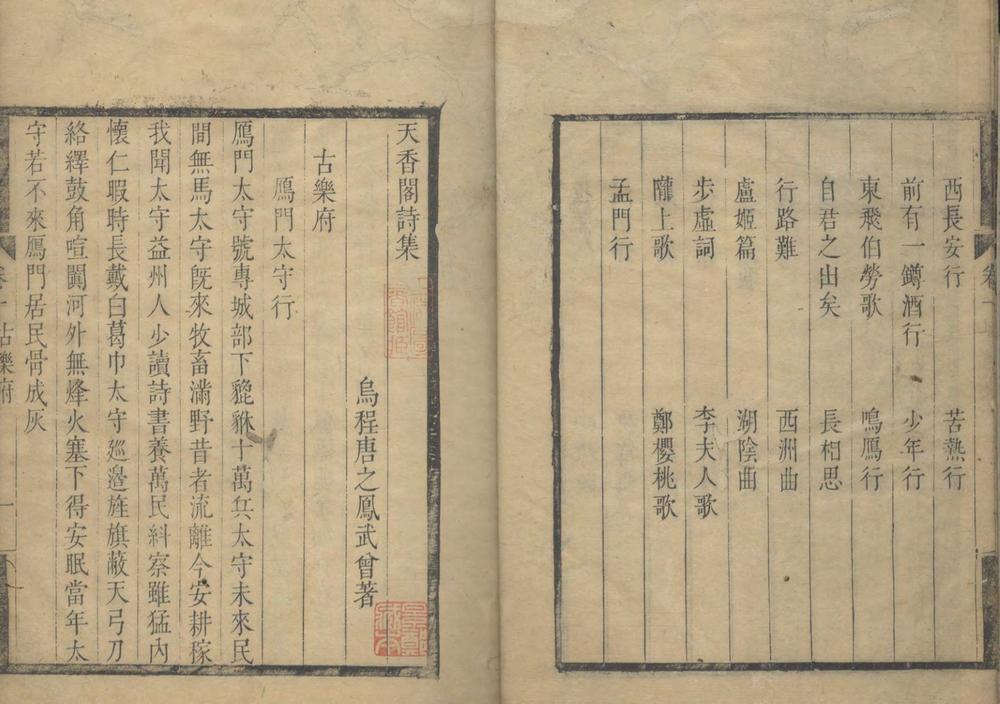 卷一
西長安行 苦熱行
前有一鐏酒行 少年行
東飛伯勞歌 鳴鴈行
自君之出矣 長相思
行路難 西洲曲
盧姬篇 湖陰曲
步虛詞 李夫人歌
隴上歌 鄭櫻桃歌
孟門行
天香閣詩集
烏程唐之鳳武曾著
古樂府
鴈門太守行
鴈門太守號專城部下貔貅十萬兵太守未來民
間無馬太守旣來牧畜滿野昔者流離今安耕稼
我聞太守益州人少讀詩書養萬民糾察雖猛內
懷仁暇時長戴白葛巾太守廵邉旌旗蔽天弓刀
絡繹鼓角喧闐河外無烽火塞下得安眠當年太
守若不來鴈門居民骨成灰
卷一 古樂府 一